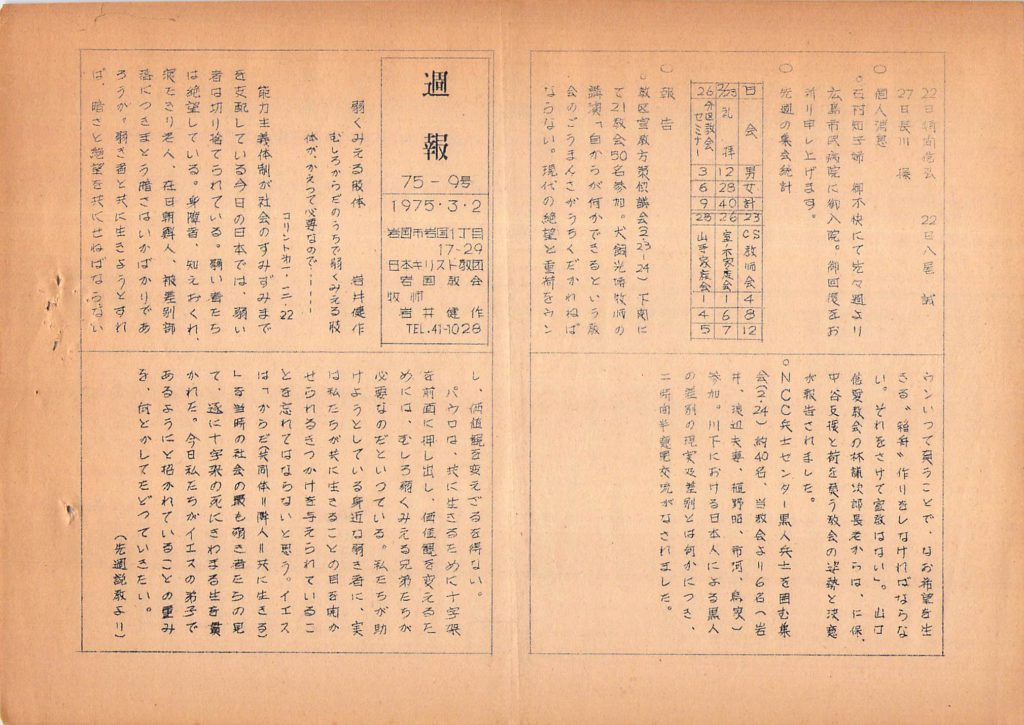 22日八屋　誠
27日長川　操
○　個人消息
○石村知子姉　御不快にて先々週より
広島市民病院に御入院。御回復をお
祈り申し上げます。
○　先週の集会統計
日　会　男　女　計
2/23　礼拝　12　28　40
26　分区教会セミナー　3　6　9
23　CS教師会　4　8　12
26　室木家庭会　1　6　7
25　山手家庭会　1　4　5
○　報　告
○教区宣教方策協議会(2.23-24)下関に
て21教会50名参加。犬飼光博牧師の
講演「自からが何かできるという教
会のごうまんさがうちくだかれねば
ならない。現代の絶望と重荷をウン
ウンいって負うことで、なお希望を生
きる〝箱舟〟作りをしなければならな
い。それをさけて宣教はない」。山口
信愛教会の林謙次郎長老からは、仁保、
中谷反援と荷を負う教会の姿勢と決意
が報告されました。
○NCC兵士センター黒人兵士を囲む集
会(2.24)約40名、当教会より6名(岩
井、渡辺夫妻、植野昭、市河、鳥家)
参加。川下における日本人による黒人
の差別の現実及差別とは何かにつき、
二時間半豊肥交流がなされました。
週報
75-9号
1975・3・2
岩国市岩国1丁目
17-29
日本キリスト教団
岩国教会
牧師
岩井健作
TEL.41-1028
弱くみえる肢体　岩井健作
むしろからだのうちで弱くみえる肢
体が、かえって必要なので・・・・・
コリント㐧一・一二・22
能力主義体制が社会のすみずみまで
を支配している今日の日本では、弱い
者は切り捨てられている。弱い者たち
は絶望している。身障者、知えおくれ、
寝たきり老人、在日朝鮮人、被差別部
落につきまとう暗さはいかばかりであ
ろうか。弱き者と共に生きようとすれ
ば、暗さと絶望を共にせねばならない
し、価値観を変えざるを得ない。
パウロは、共に生きるために十字架
を前面に押し出し、価値観を変えるた
めには、むしろ弱くみえる兄弟たちが
必要なのだといっている。私たちが助
けようとしている身近な弱き者に、実
は私たちが共に生きることへの目を開か
せられるきっかけを与えられているこ
とを忘れてはならないと思う。イエス
は「からだ(共同体＝隣人＝共に生きる)
」を当時の社会の最も弱き者たちの見
て、遂に十字架の死にきわまる生を貫
かれた。今日私たちがイエスの弟子で
あるようにと招かれていることの重み
を、何とかしてたどっていきたい。
(先週説教より)